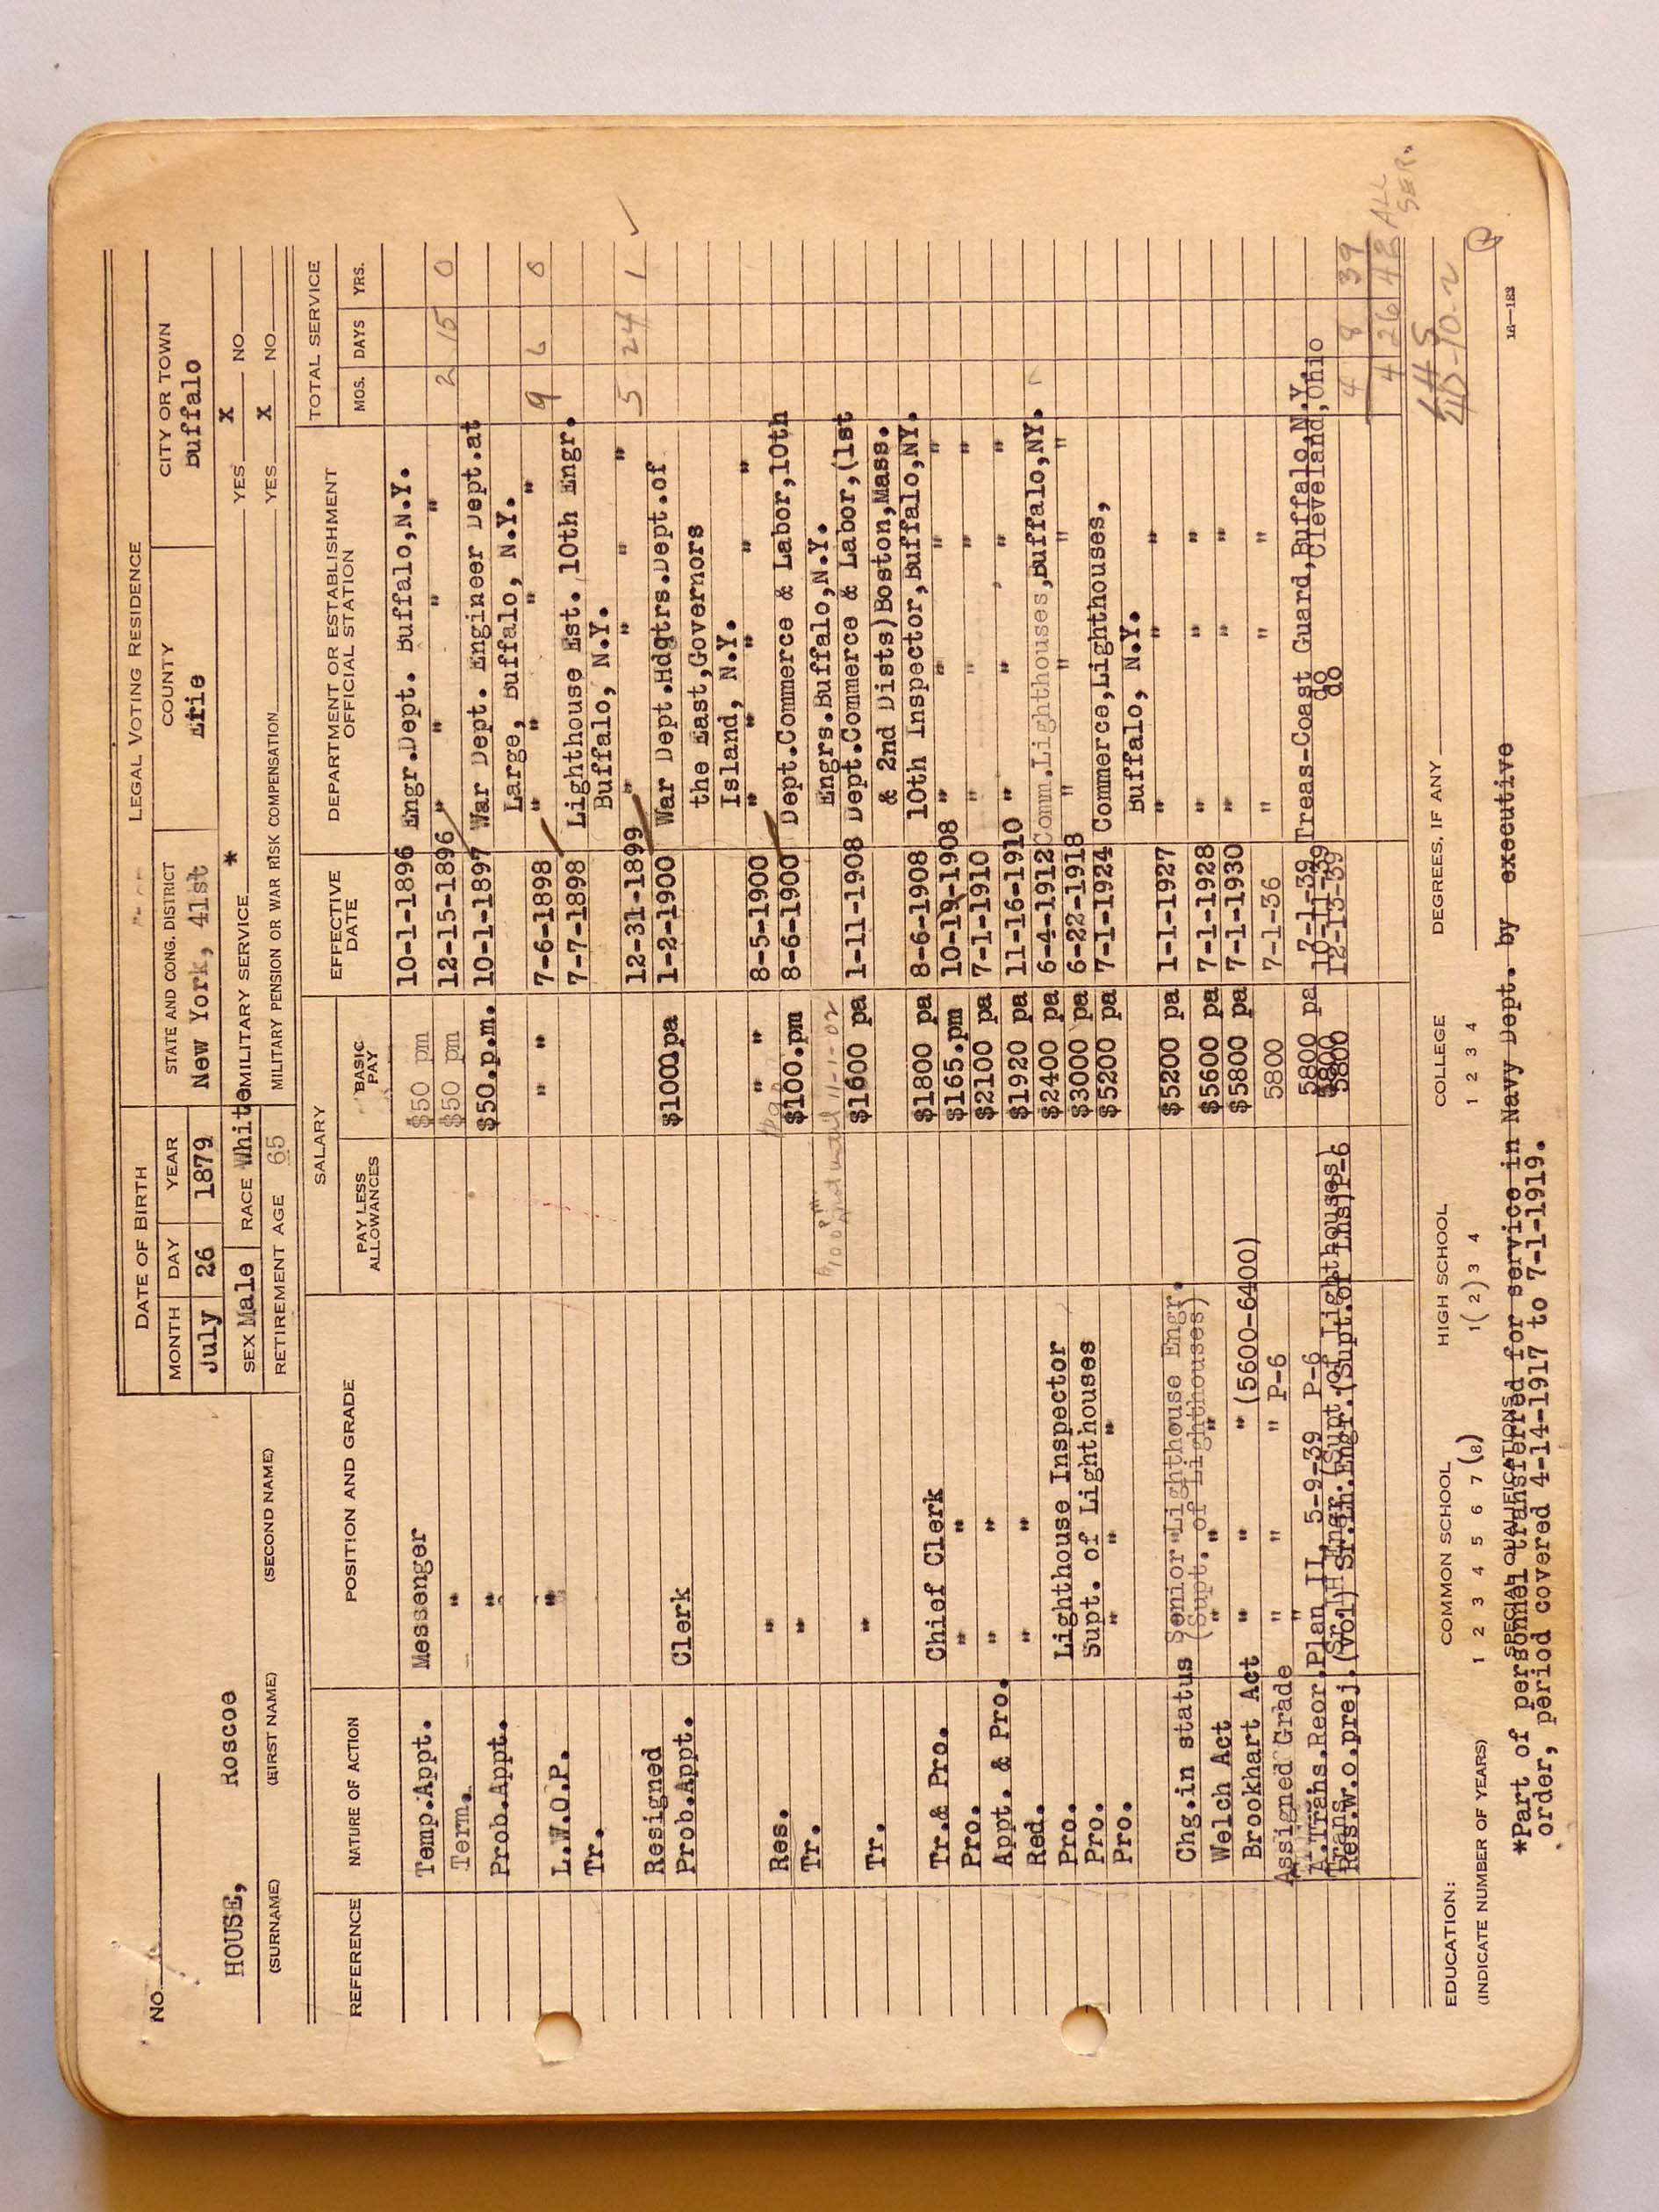 NO.
HOUSE, Roscoe
(SURNAME) (FIRST NAME) (SECOND NAME)
DATE OF BIRTH LEGAL VOTING RESIDENCE
MONTH DAY YEAR STATE AND CONG. DISTRICT COUNTY CITY OR TOWN
July 26 1879 New York, 41st Erie Buffalo
SEX Male RACE White MILITARY SERVICE * YES X NO
RETIREMENT AGE 65 MILITARY PENSION OR WAR RISK COMPENSATION YES X NO
REFERENCE NATURE OF ACTION POSITION AND GRADE SALARY EFFECTIVE DATE DEPARTMENT OR ESTABLISHMENT OFFICIAL STATION TOTAL SERVICE
PAY LESS ALLOWANCES BASIC PAY MOS. DAYS YRS.
Temp.Appt. Messenger $50 pm 10-1-1896 Engr.Dept. Buffalo,N.Y.
Term. " $50 pm 12-15-1896 " " " " 2 15 0
Prob.Appt. " $50.p.m. 10-1-1897 War Dept. Engineer Dept.at
Large, Buffalo, N.Y.
L.W.O.P. " " " 7-6-1898 " " " " 9 6 0
Tr. 7-7-1898 Lighthouse Est. 10th Engr.
Buffalo, N.Y.
Resigned 12-31-1899 " " " " 5 24 1
Prob.Appt. Clerk $1000pa 1-2-1900 War Dept.Hdqtrs.Dept.of
the East,Governors
Island, N.Y.
Res. " " " 8-5-1900 " " " "
Tr. " $100.pm 8-6-1900 Dept.Commerce & Labor,10th
$100 pm until 11-1-02 Engrs.Buffalo,N.Y.
Tr. " $1600 pa 1-11-1908 Dept.Commerce & Labor,(1st
& 2nd Dists)Boston,Mass.
Tr.& Pro. Chief Clerk $1800 pa 8-6-1908 10th Inspector,Buffalo,NY.
Pro. " " $165.pm 10-19-1908 " " " "
Appt. & Pro. " " $2100 pa 7-1-1910 " " " "
Red. " " $1920 pa 11-16-1910 " " , " "
Pro. Lighthouse Inspector $2400 pa 6-4-1912 Comm.Lighthouses,Buffalo,NY.
Pro. Supt. of Lighthouses $3000 pa 6-22-1918 " " " "
Pro. " " " $5200 pa 7-1-1924 Commerce,Lighthouses,
Buffalo, N.Y.
Chg.in status Senior Lighthouse Engr. $5200 pa 1-1-1927 " " "
(Supt. of Lighthouses)
Welch Act " " " $5600 pa 7-1-1928 " " "
Brookhart Act " " " (5600-6400) $5800 pa 7-1-1930 " " "
Assigned Grade " " " P-6 5800 7-1-36 " " "
A.Trans.Reor.Plan II 5-9-39 P-6 5800 pa 7-1-39 Treas-Coast Guard,Buffalo,N.Y.
Trans. (Supt of Lighthouses) 5800 10-11-39 do Cleveland,Ohio
Res.w.o.prej.(Vol) Sr.Lh.Engr.(Supt.of Lhs)P-6 5800 12-13-39 do
4 8 39
4 26 42 ALL SER.
EDUCATION: COMMON SCHOOL HIGH SCHOOL COLLEGE DEGREES, IF ANY
(INDICATE NUMBER OF YEARS) 1 2 3 4 5 6 7 (8) 1 (2) 3 4 1 2 3 4
SPECIAL QUALIFICATIONS
*Part of personnel transferred for service in Navy Dept. by executive
order, period covered 4-14-1917 to 7-1-1919.
16-183